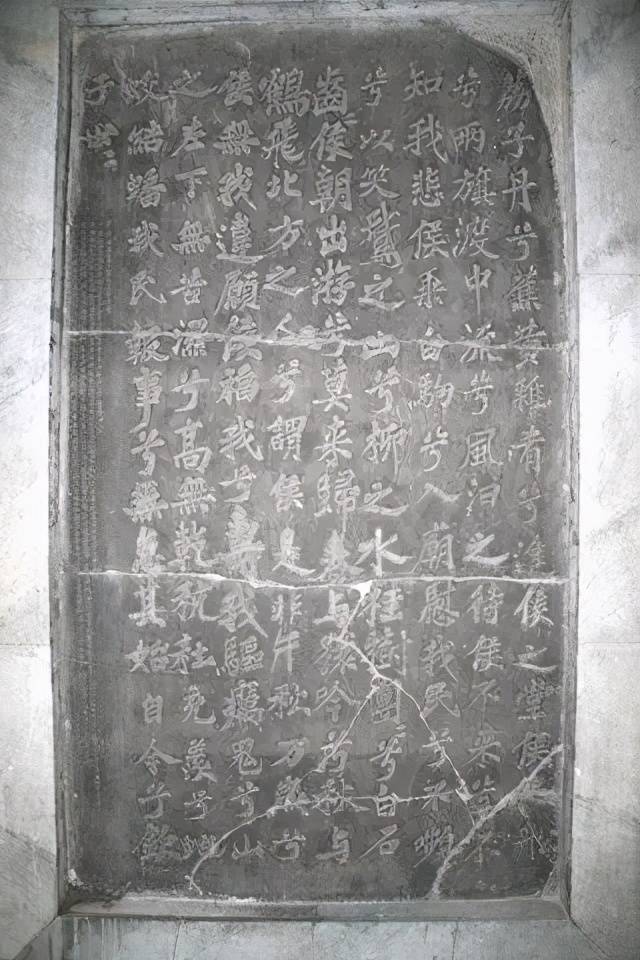 荔子丹兮蕉黄雜肴兮進侯之堂侯船
兮兩旗渡中流兮風汩之待侯不來兮不
知我悲侯乘白駒兮入廟慰我民兮不嚬
兮以笑鵞之山兮柳之水桂樹團〻兮白石
齒〻侯朝出游兮莫來歸春與猨吟兮秋與
鶴飛北方之人兮謂侯是非千秋万歲兮
侯無我違願侯福我兮壽我驅癘鬼兮山
之左下無苦濕兮高無乾秔稌充羡兮蛇
蛟結蟠我民報事兮無怠其始自今兮欽
于世〻